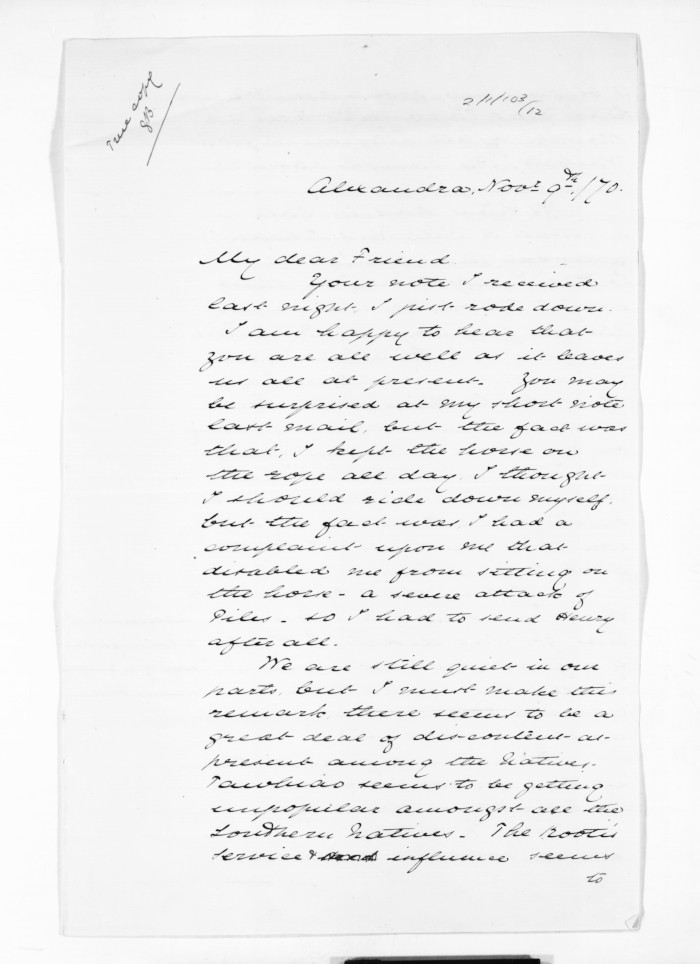 True copy
2/1/103
/12
Alexandra, Novr 9th/70.
My dear Friend
Your note I received
last night. I just rode down.
I am happy to hear that
you are all well as it leaves
us all at present. You may
be surprised at my short note
last mail, but the fact was
that, I kept the horse on
the rope all day. I thought
I should ride down myself,
but the fact was I had a
complaint upon me that
disabled me from sitting on
the horse - a severe attack of
Piles - so I had to send Henry
after all.
We are still quiet in our
parts, but I must make this
remark, there seems to be a
great deal of discontent at
present among the Natives.
Tawhiao seems to be getting
unpopular amongst all the
Southern Natives. The
service & influence seems
to